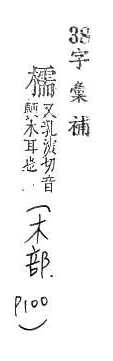 38字彙補
檽
又乳切音
木耳也
(木部
P100)